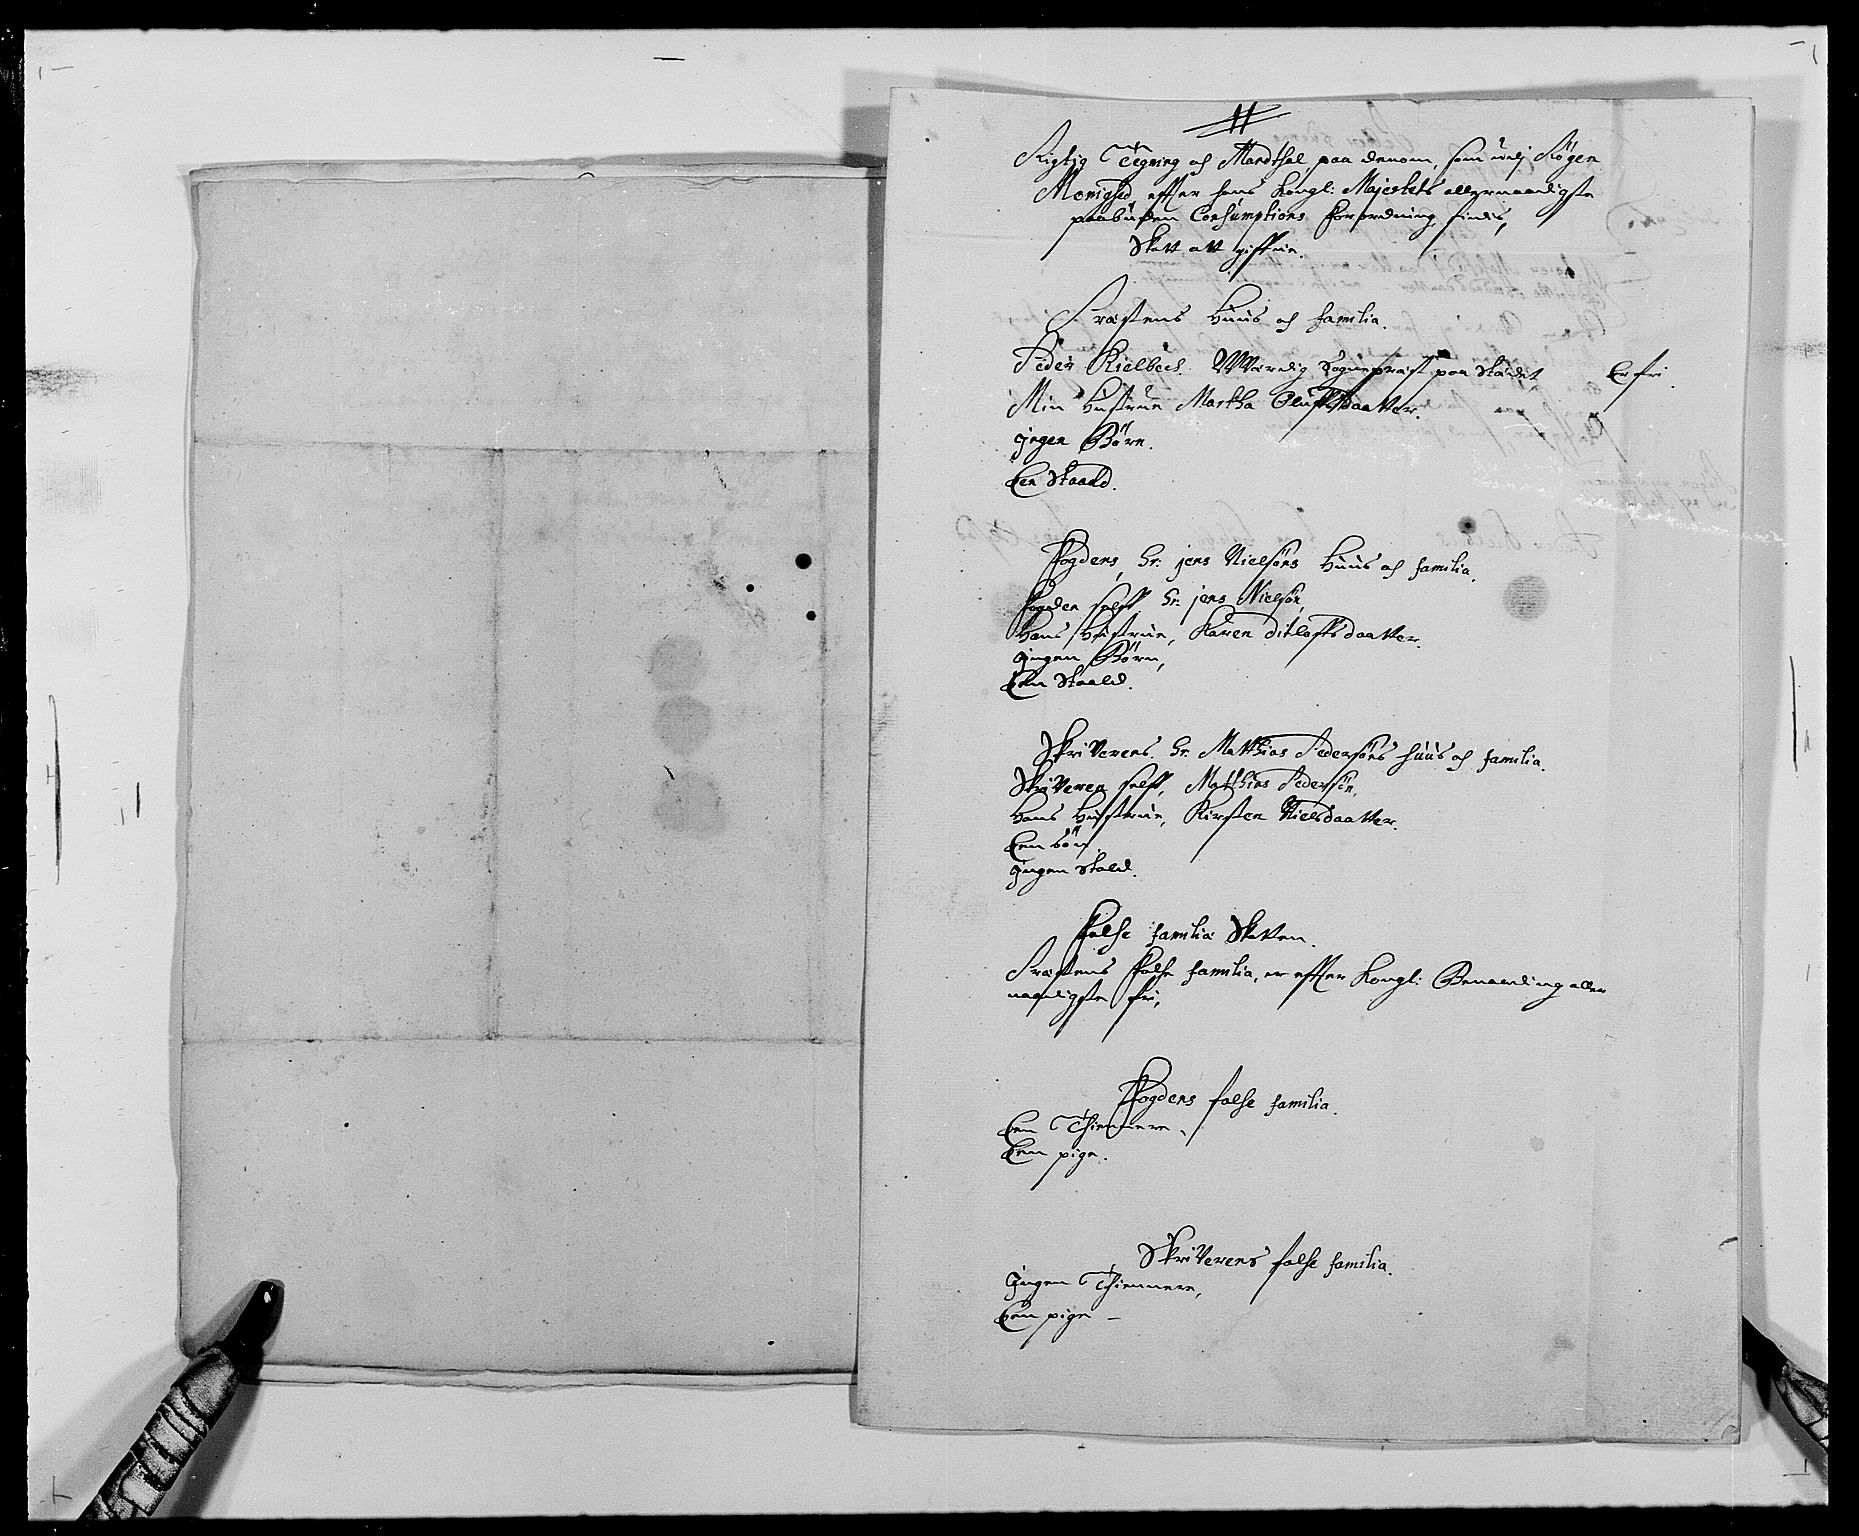 11
Rigtig Tegning og Mandthal paa dennom, som udj Søgen
Menighed effter hans Kongl: Majestets allernaadigste
paabuden Consumptions Forordning findis,
Skatt att giffue.
Præstens Huus og familia.
Peder Kielbech. Wværdig Sognepræst paa Stædet Er fri.
Min Hustrue Martha Oluffsdaatter.
jngen Børn.
Een Staald.
Fogdens, Sr: jens Nielsøns Huus og familia.
Fogden self, Sr: jens Nielsøn,
Hans Hustrue, Karen Ditløffsdaatter.
jngen Børn,
Een Staald.
Skriverens. Sr: Matthias Pedersøns huus og familia.
Skriveren self, Matthias Pedersøn,
Hans Hustrue, Kirsten Nielsdaatter.
Een søn.
jngen Stald.
Folke familiæ Skatten.
Præstens Folke familia, er effter Kongl: Benaading aller
naadigste fri,
Fogdens folke familia.
Een Thiennere,
Een pige.
Skriverens folke familia.
jngen Thiennere,
Een pige –